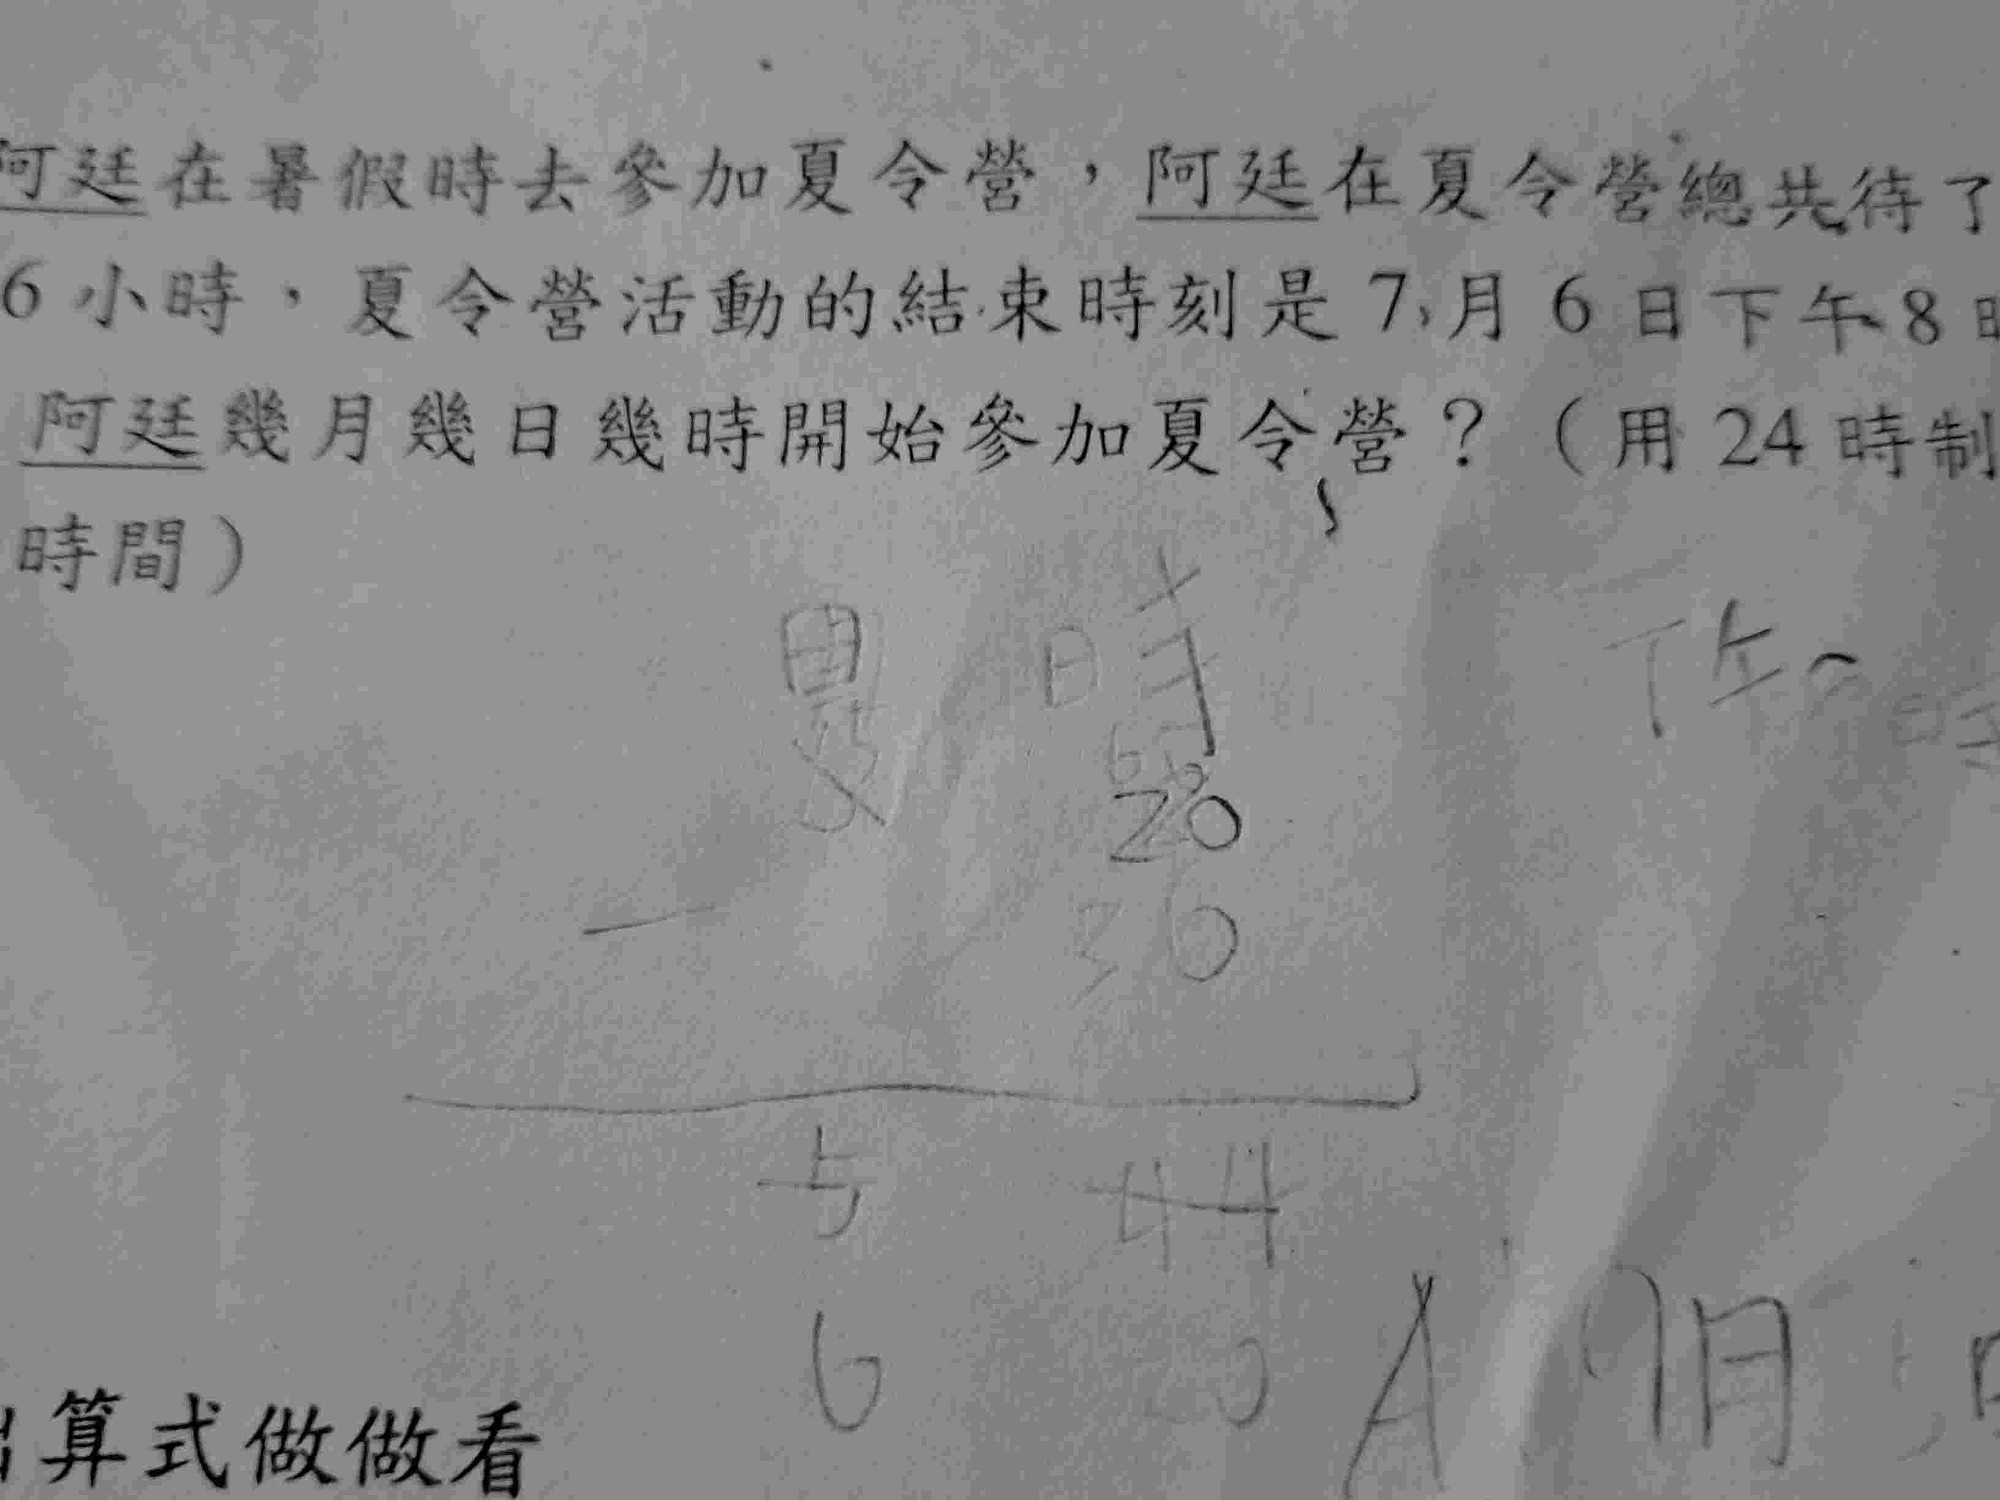 阿廷在暑假時去參加夏令營，阿廷在夏令營總共待了
6小時，夏令營活動的結束時刻是7月6日下午8時
阿廷幾月幾日幾時開始參加夏令營？（用24時制
時間）
時
下午
20
－ 36
5 44
6
A 7月
算式做做看